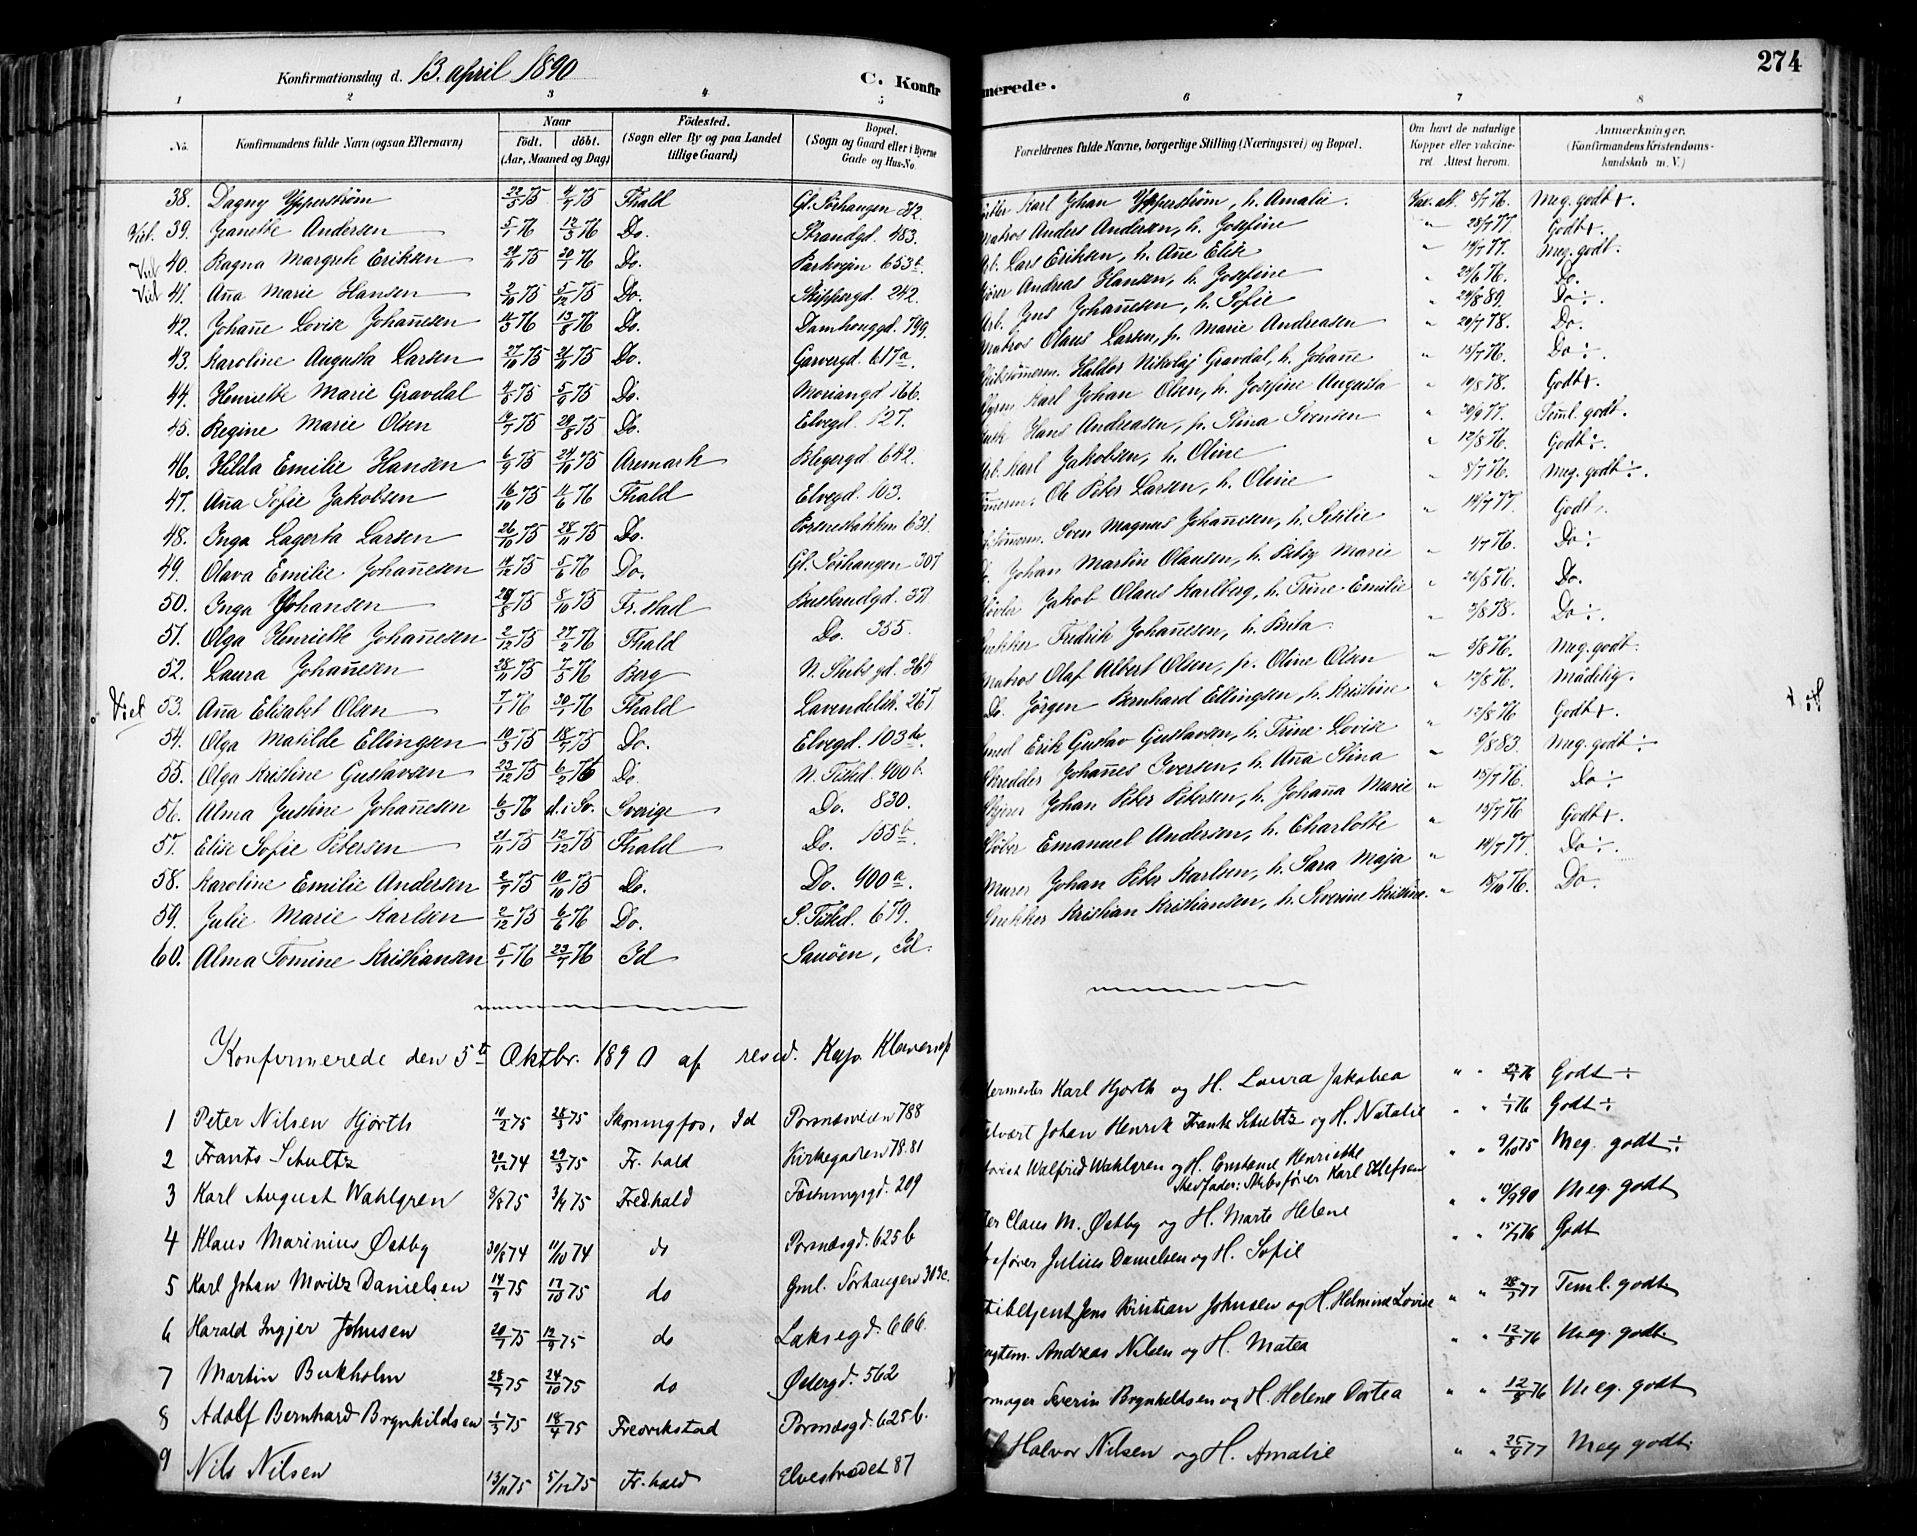 274
Konfirmationsdag d. 13. april 1890
C. Konfirmerede.
1 2 3 4 5 6 7 8
No. Konfirmandens fulde Navn (ogsaa Efternavn) Naar født. døbt. (Aar, Maaned og Dag) Fødested. (Sogn eller By og paa Landet tillige Gaard) Bopæl. (Sogn og Gaard eller i Byerne Gade og Hus-No. Forældrenes fulde Navne, borgerlige Stilling (Næringsvei) og Bopæl. Om havt de naturlige Kopper eller vakcineret. Attest herom. Anmærkninger. (Konfirmandens Kristendomskundskab m. V.)
38. Dagny Ypperstrøm 75 4/7 75 Fhald Gl. Sørhaugen 312. Karl Johan Ypperstrøm, h. Amalie. Vac. att. 8/7 76. Meg. godt +.
39. Jeanette Andersen 5/1 76 12/3 76 Do. Strandgd. 483. Matros Anders Andersen, h. Josefine " 28/7 77 Godt +.
40. Ragna Margrete Eriksen 75 76 Do. Parkvejen 653b. Arb. Lars Eriksen, h. Ane Elise " 14/7 77. Meg. godt.
41. Aña Marie Hansen 2/10 75 5/12 75 Do. Skippergd. 242. Andreas Hansen, h. Josefine " 24/6 76. Do.
42. Johañe Lovise Johañesen 76 13/8 76 Do. Damhauggd. 799. Arb. Jens Johañesen, h. Sofie " 24/8 89. Do ÷.
43. Karoline Augusta Larsen 27/10 75 75 Do. Garvergd. 617a. Matros Olaus Larsen, p. Marie Andreasen " 20/7 78. Do.
44. Henriette Marie Gravdal 75 5/9 75 Do. Moriangd 166. Haldor Nikolaj Gravdal, h. Johañe " 15/7 76. Do ÷.
45. Regine Marie Olsen 75 29/8 75 Do. Elvegd. 127. Karl Johan Olsen, h. Josefine Augusta " 14/8 78. Godt +.
46. Hilda Emilie Hansen 6/9 75 24/10 75 Aremark Blegergd 642. Hans Andreasen, p. Stina Svensen " 20/9 77. Teml. godt.
47. Aña Sofie Jakobsen 16/10 75 4/6 76 Fhald Elvegd. 103. Arb. Karl Jakobsen, h. Oline " 12/8 76. Godt ÷.
48. Inga Lagerta Larsen 26/10 75 28/11 75 Do. 631. Ole Peter Larsen, h. Oline " 8/7 76. Meg. godt ÷.
49. Olava Emilie Johañesen 75 5/6 76 Do. Gl. Sørhaugen 307 Sven Magnus Johañesen, h. Sesilie " 14/7 77. Godt.
50. Inga Johansen 29/8 75 8/10 75 Fr.stad Buskerudgd. 371 Johan Martin Olausen, h. Betsy Marie " 1/7 76. Do ÷
51. Olga Henriette Johañesen 2/12 75 27/2 76 Fhald Do. 355. Jakob Olaus Karlberg, h. Trine Emilie " 26/8 76. Do.
52. Laura Johañesen 28/11 75 7/5 76 Berg N. Skibsgd. 264 Fredrik Johañesen, h. Berta. " 2/8 78. Do ÷.
53. Aña Elisabet Olsen 7/1 76 30/7 76 Fhald Lavendelstr. 267 Matros Olaf Albert Olsen, p. Oline Olsen " 5/8 76. Meg. godt.
54. Olga Matilde Ellingsen 10/3 75 18/7 75 Do. Elvegd. 103 Do. Jørgen Bernhard Ellingsen, h. Kristine " 17/8 76. Mådelig.
55. Olga Kristine Gustavsen 23/12 75 6/2 76 Do. N. Tisted. 400b. Erik Gustav Gustavsen, h. Trine Lovise " 12/8 76 Godt +.
56. Alma Justine Johañesen 6/3 76 d. i Sv. Sverige Do. 830. Skredder Johañes Iversen, h. Aña Stina " 9/8 83. Meg. godt ÷
57. Elise Sofie Petersen 21/11 75 12/12 75 Fhald Do. 155b. Johan Peter Petersen, h. Johaña Marie " 15/7 76. Do ÷
58. Karoline Emilie Andersen 2/7 75 10/10 75 Do. Do. 400a. Emanuel Andersen, h. Charlotte " 15/7 76 Godt +.
59. Julie Marie Karlsen 2/12 75 6/6 76 Do. S. Tisted. 679. Murer Johan Peter Karlsen, h. Sara Maja " 14/7 77. Do ÷.
60. Alma Tomine Kristiansen 5/1 76 23/7 76 Id Sauøen, Id. Kristian Kristiansen, h. Severine Kristine. " 18/10 76. Do.
Konfirmerede den 5te Oktbr. 1890 af resid. Kap. Klaveness
1 Peter Nilsen Hjørth 10/2 75 28/3 75 Skoningfos, Id Pornæsveien 788 Karl Hjorth og H. Laura Jakobea " " 76 Godt ÷
2 Frants Schultz 20/12 74 29/3 75 Fr. hald Kirkegaden 78.81 Johan Henrik Frants Schultz og H. Natalie " " 1/7 76 Godt ÷
3 Karl August Wahlgren 8/8 75 3/9 75 Fredhald Fæstningsgd. 209 Walfred Wahlgren og H. Constance Henriette Stedfader: Skibsfører Karl Ellefsen " " 9/10 75 Meg. godt ÷
4 Klaus Marinius Østby 30/8 74 11/10 74 do Pornæsgd. 625b Claus M. Østby og H. Marte Helene " " 10/9 90 Meg. godt
5 Karl Johan Moritz Danielsen 14/9 75 17/10 75 do Gml. Sørhaugen 303c. Julius Danielsen og H. Sofie " " 15/7 76 Godt
6 Harald Ingjer Johnsen 20/7 75 12/9 75 do Laksegd. 666. Jens Kristian Johnsen og H. Helmine Lovise " " 28/7 77 Teml. godt
7 Martin Bukholm 28/7 75 24/10 75 do Østergd. 562 Andreas Nilsen og H. Matea " " 12/8 76 Meg. godt.
8 Adolf Bernhard Brynhildsen 1/3 75 18/4 75 Fredrikstad Pornæsgd. 625b. Severin Brynhildsen og H. Helene Dortea " " 12/8 76 Meg. godt
9 Nils Nilsen 13/11 75 5/12 75 Fr. hald Elvestrædet 87 Halvor Nilsen og H. Amalie " " 77 Meg godt.